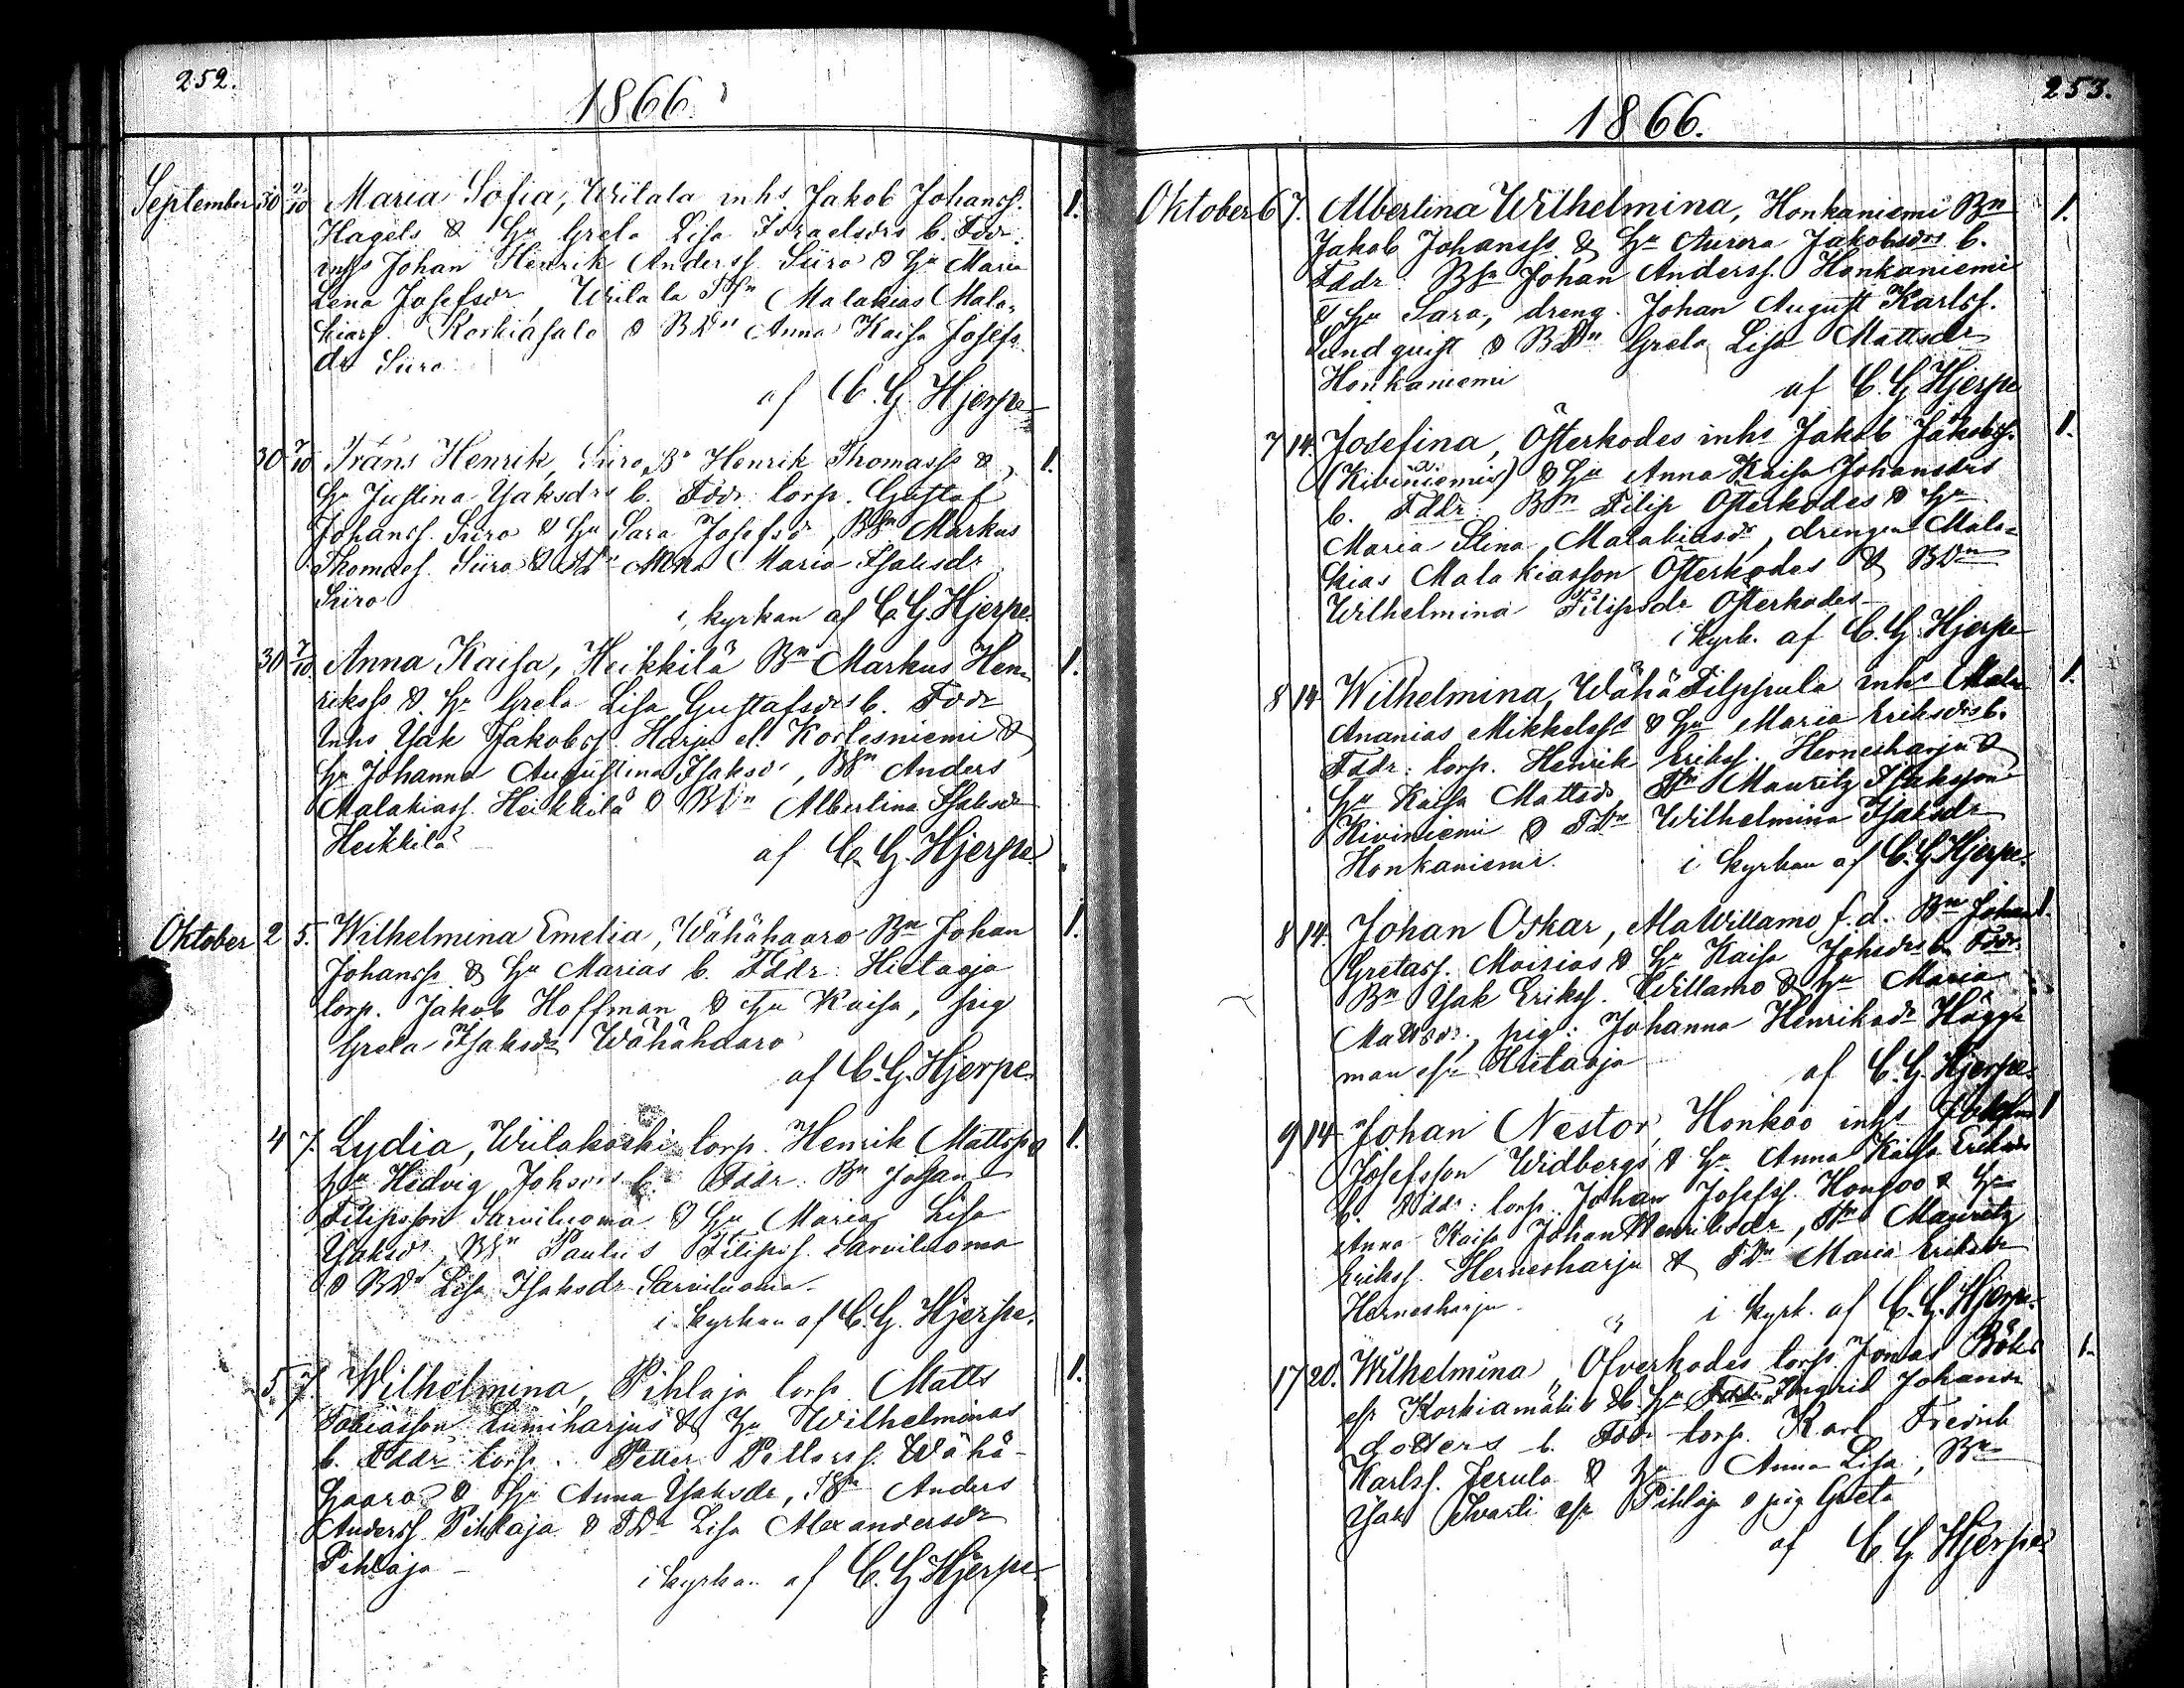 252.
1866.
September 30 2/10 Maria Sofia, Wiilala inhs Jakob Johanss. 1.
Hagels & hu Greta Lisa Israelsdrs b. Fddr:
inhs Johan Henrik Anderss. Siiro & hu Maria
Lena Josefsdr, Wiilala Malakias Mala-
kiass. Korkiasalo & BDn Anna Kaisa Josefs-
dr Siiro
af C. G. Hjerpe
30 7/10 Frans Henrik, Siiro, Bn Henrik Thomass. & 1.
hu Justina Isaksdrs b. Fddr: torp. Gustaf
Johanss. Siiro & hu Sara Josefsdr, BSn Markus
Thomass. Siiro & Anna Maria Isaksdr
Siiro
i kyrkan af C. G. Hjerpe.
30 7/10. Anna Kaisa, Heikkilä Bn Markus Hen- 1.
rikss. & hu Greta Lisa Gustafsdrs b. Fddr
Inhs Isak Jakobss. Harju el. Korlesniemi &
hu Johanna Augustina Isaksdr, BSn Anders
Malakiass. Heikkilä & BDn Albertina Isaksdr
Heikkilä
af C. G. Hjerpe
Oktober 2 5. Wilhelmina Emelia, Wähähaaro Bn Johan 1.
Johanss. & hu Marias b. Fddr: Hietaoja
torp. Jakob Hoffman & hu Kaisa, pig
Greta Isaksdr Wähähaaro
af C. G. Hjerpe.
4 7. Lydia, Wiilakoski torp. Henrik Mattss. & 1.
hu Hedvig Johsdrs b. Fddr: Bn Johan
Filipsson Sarviluoma & hu Maria Lisa
Isaksdr, BSn Paulus Filipss. Sarviluoma
& BDn Lisa Isaksdr Sarviluoma.
i kyrkan af C. G. Hjerpe.
5 7. Wilhelmina, Pihlaja torp. Matts 1.
Tobiasson Lumiharjus & hu Wilhelminas
b. Fddr torp. Petter Petterss. Wähä-
haaro & hu Anna Isaksdr, Anders
Anderss. Pihlaja & TDn Lisa Alexandersdr
Pihlaja
i kyrkan af C. G. Hjerpe
253.
1866.
Oktober 6 7. Albertina Wilhelmina, Honkaniemi Bn 1.
Jakob Johanss. & hu Aurora Jakobsdrs b.
Fddr: BSn Johan Anderss. Honkaniemi
& hu Sara, dreng. Johan August Karlss.
Lindquist & BDn Greta Lisa Mattsdr
Honkaniemi
af C. G. Hjerpe
7 14. Josefina, Österkodes inhs Jakob Jakobss. 1.
(Kiviniemis) & hu Anna Kaisa Johansdrs
b. Fddr: Filip Österkodes & hu
Maria Stina Malakiasdr, drengen Mala-
kias Malakiasson Österkodes & BDn
Wilhelmina Filipsdr Österkodes
i kyrk. af C. G. Hjerpe
8 14 Wilhelmina, Wähä Filppula inhs 1.
Ananias Mikkelss. & hu Maria Eriksdrs b.
Fddr: torp. Henrik Erikss. Hernesharju &
hu Kaisa Mattsdr Mauritz Isaksson
Kiviniemi & TDn Wilhelmina Isaksdr
Honkaniemi. i kyrkan af C. G. Hjerpe.
8 14. Johan Oskar, AlaWillamo f.d. Bn Johan 1.
Gretass. Moisios & hu Kaisa Johsdrs b. Fddr:
Bn Isak Erikss. Willamo & hu Maria
Mattsdr, pig: Johanna Henriksdr Hägg-
man Hietaoja
af C. G. Hjerpe.
9 14 Johan Nestor, Honkoo inhs 1
Josefsson Widbergs & hu Anna Kaisa Eriksdrs
b. Fddr: torp. Johan Josefss. Honkoo & hu
Anna Kaisa Johan Henriksdr, Mauritz
Erikss. Hernesharju & TDn Maria Eriksdr
Hernesharju
i kyrk. af C. G. Hjerpe.
17 20. Wilhelmina, Öfverkodes torp. Jonas 1.
Korkiamäki & hu Ingrid Johans-
dotters b. Fddr torp. Karl Fredrik
Karlss. Jerula & hu Anna Lisa, Bn
Isak Pihlaja & pig Greta
af C. G. Hjerpe